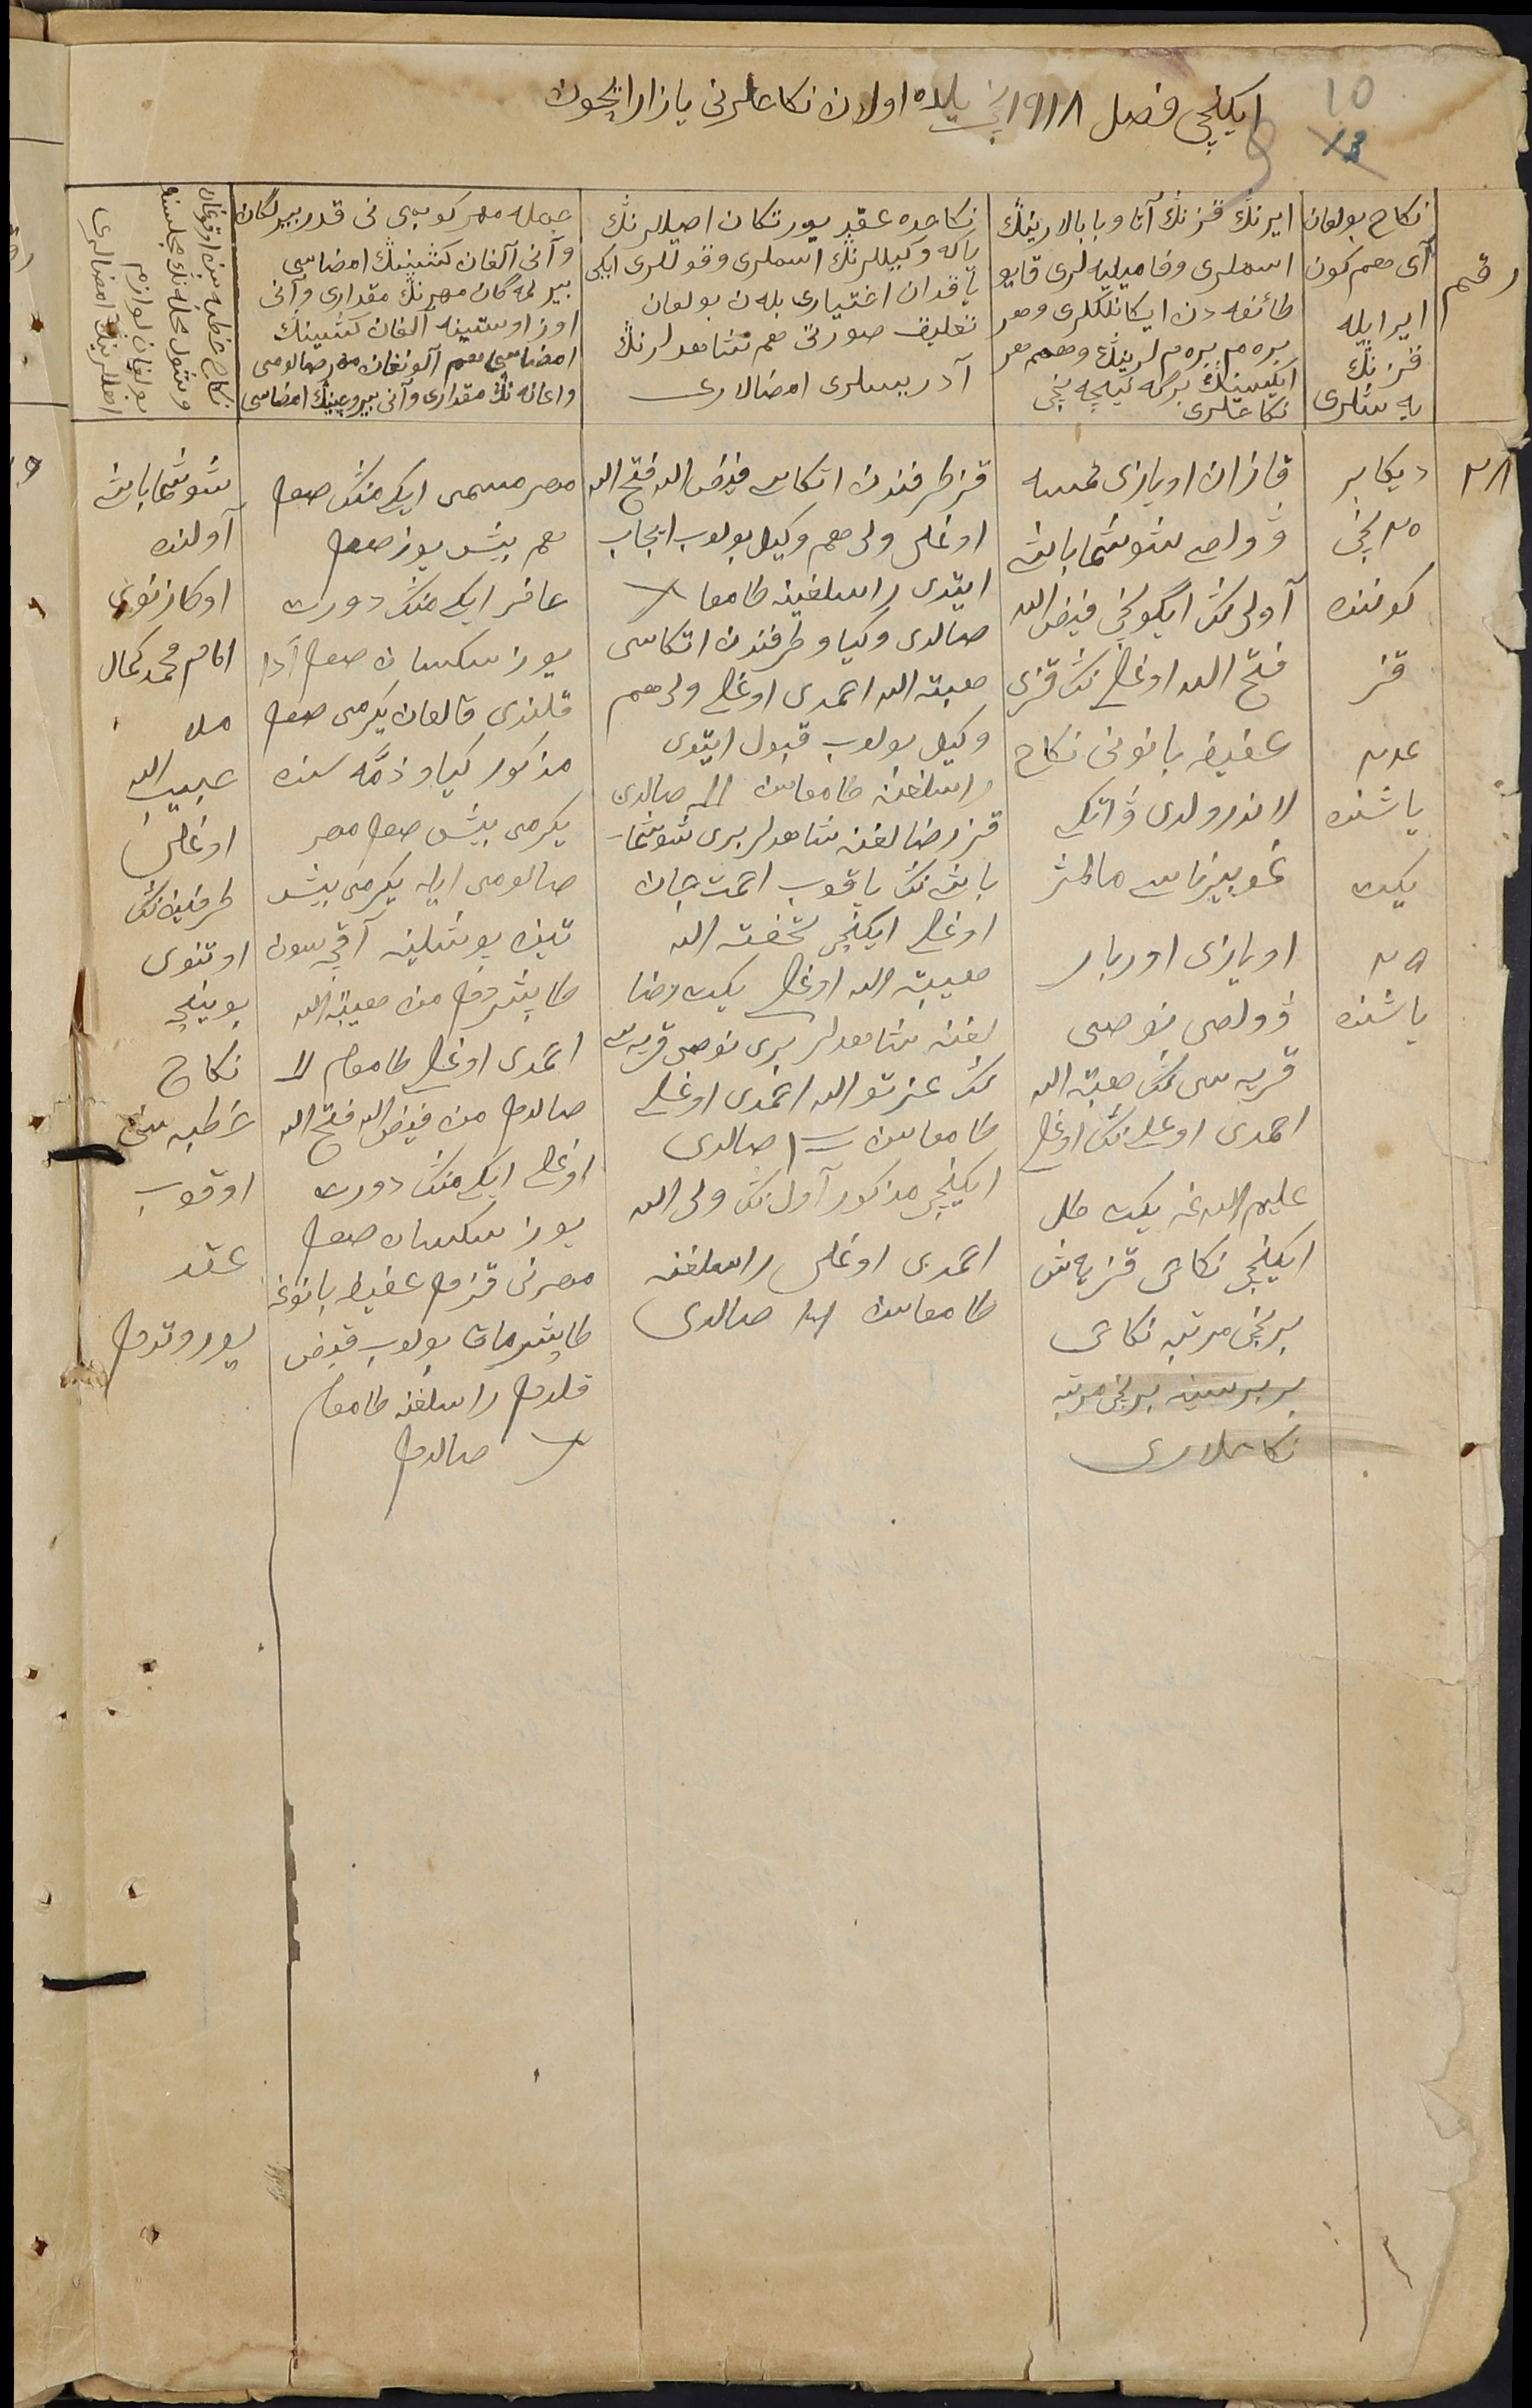 10
13
ایکنچی فصل ۱۹۱۸ نچی یلده اولان نکاحلرنی یازار ایچون
رقم
نکاح بولغان
آی هم کون
ایر ایله
قزنڭ
یه شلری
ایرنڭ قزنڭ آتا و بابالارینڭ
اسملری و فامیلیه لری قایو
طائفه دن ایکانلکلری و هر
بره م بره م لرینڭ و هم هر
ایکیسینڭ برگه نیچه نچی
نکاحلری
نکاحده عقد یورتکان اصیللرنڭ
یاکه وکیللرنڭ اسملری و قوللری ایکی
یاقدان اختیاری بله ن بولغان
تعلیق صورتی هم شاهدلرنڭ
آدریسلری امضالاری
جمله مهر کوبمی نی قدر بیرلگان
و آنی آلغان کشینڭ امضاسی
بیرلمه گان مهرنڭ مقداری و آنی
اوز اوستینه آلغان کشینڭ
امضاسی هم آلونغان مهر صالومی
و اعانه نڭ مقداری و آنی بیروچینڭ امضاسی
نکاح خطبه سن اوقوغان
و شول محله نڭ مجلسنده
بولغان لوازم
اهللرینڭ امضالری
۲۸
دیکابر
۲۵ نچی
کوننده
قز
یاشنده
یکت
۲۵
یاشنده
قازان اویازی
ڤولص شوشماباش
آولی نڭ ایگونچی فیض الله
فتح الله اوغلی نڭ قزی
عفیفه بانونی نکاح
لاندرولدی ڤاتکی
غوبیرناسی مالمژ
اویازی اوربار
ڤولصی نوصی
قریه سی نڭ هبة الله
احمدی اوغلی نڭ اوغلی
علیم الله غه یکت
ایکنچی نکاحی قز یه ش
برنچی مرتبه نکاحی
بر برسینه برنچی مرتبه
نکاحلاری
قز طرفندن اتکاسی فیض الله فتح الله
اوغلی ولی هم وکیل بولوب ایجاب
ایتدی راسلغینه طامغا
صالدی و کیاو طرفندن اتکاسی
هبة الله احمدی اوغلی ولی هم
وکیل بولوب قبول ایتدی
راسلغنه طامغاسن صالدی
قز رضالغنه شاهدلر بری شوشما-
باش نڭ یاقوب احمت جان
اوغلی ایکنچی تحفة الله
هبة الله اوغلی یکت رضا
لغنه شاهدلر بری نوصی قریه سی
نڭ عزت الله احمدی اوغلی
طامغاسن صالدی
ایکنچی مذکور آول نڭ ولی الله
احمدی اوغلی راسلغنه
طامغاسن صالدی
مهر مسمی ایکی منڭ صوم
هم بیش یوز صوم
حاضر ایکی منڭ دورت
یوز سکسان صوم ادا
قلندی قالغان یکرمی صوم
مذکور کیاو ذمه سنده
یکرمی بیش صوم مهر
صالومی ایله یکرمی بیش
تین بوشلینه آقچه سون
طابشردم من هبة الله
احمدی اوغلی طامغام
صالدم من فیض الله فتح الله
اوغلی ایکی منڭ دورت
یوز سکسان صوم
مهرنی قزم عفیفه بانوغه
طابشرماق بولوب قبض
قلدم راسلغنه طامغام
صالدم
شوشماباش
آولنده
اوکازنوی
امام محمد کمال
ملا
حبیب الله
اوغلی
طرفینڭ
اوتنوی
بوینچه
نکاح
خطبه سنی
اوقوب
عقد
یوروتدم